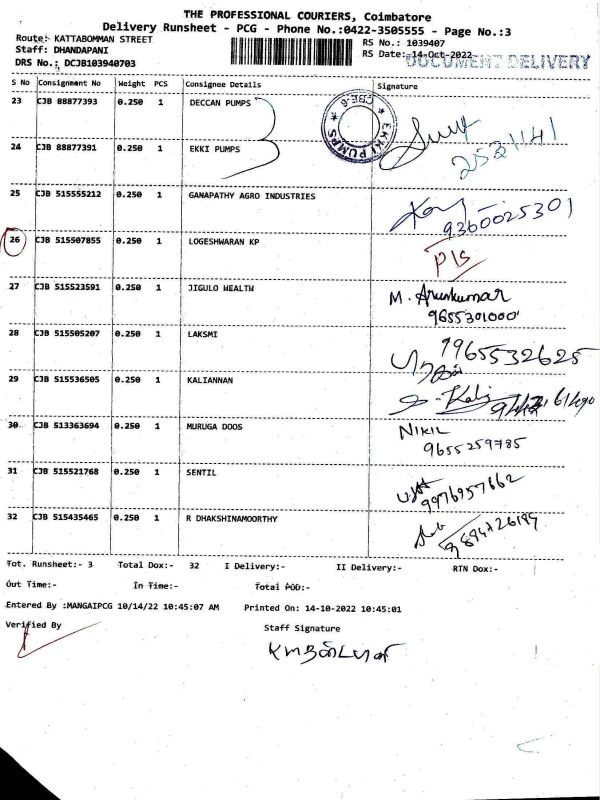 THE PROFESSIONAL COURIERS, Coimbatore
Delivery Runsheet - PCG - Phone No.:0422-3505555 - Page No.:3
Route:- KATTABOMMAN STREET
RS No.: 1039407
Staff: DHANDAPANI
RS Date:-14-Oct-2022
DRS No.: DCJB103940703
DOCUMENT DELIVERY
S No Consignment No Weight PCS Consignee Details Signature
23 CJB 88877393 0.250 1 DECCAN PUMPS
CBE-6 * EKKI PUMPS *
24 CJB 88877391 0.250 1 EKKI PUMPS
25 CJB 515555212 0.250 1 GANAPATHY AGRO INDUSTRIES 9360025301
26 CJB 515507855 0.250 1 LOGESHWARAN KP P/s
27 CJB 515523591 0.250 1 JIGULO HEALTH M. Arunkumar
9655301000
28 CJB 515505207 0.250 1 LAKSMI 9965532625
29 CJB 515536505 0.250 1 KALIANNAN
30 CJB 513363694 0.250 1 MURUGA DOOS NIKIL
9655259785
31 CJB 515521768 0.250 1 SENTIL 9976957662
32 CJB 515435465 0.250 1 R DHAKSHINAMOORTHY
Tot. Runsheet:- 3 Total Dox:- 32 I Delivery:- II Delivery:- RTN Dox:-
Out Time:- In Time:- Total POD:-
Entered By :MANGAIPCG 10/14/22 10:45:07 AM Printed On: 14-10-2022 10:45:01
Verified By Staff Signature